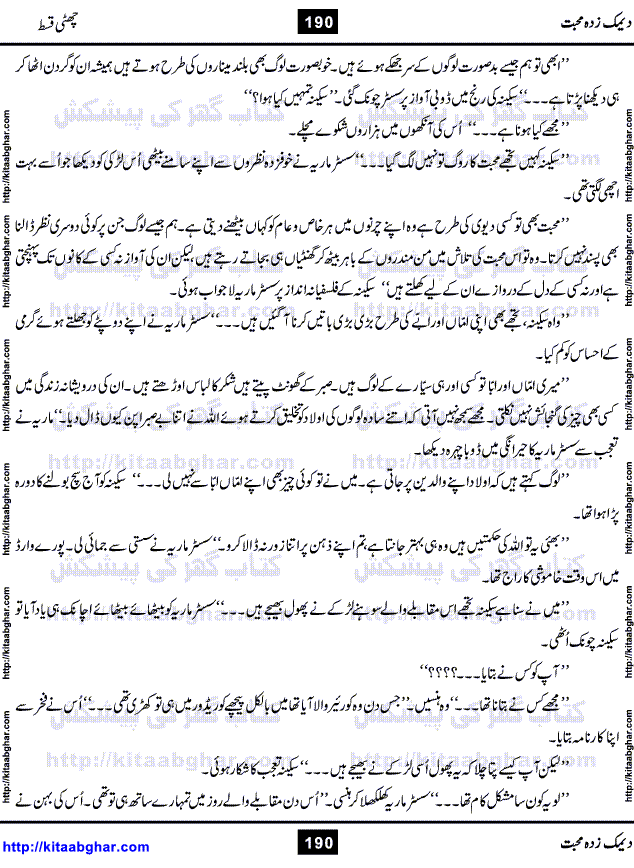 دیمک زدہ محبت 190 چھٹی قسط
’’ابھی تو ہم جیسے بدصورت لوگوں کے سر جھکے ہوئے ہیں۔ خوبصورت لوگ بھی بلند میناروں کی طرح ہوتے ہیں ہمیشہ ان کو گردن اٹھا کر
ہی دیکھنا پڑتا ہے۔۔۔‘‘ سکینہ کی رنج میں ڈوبی آواز پر سسٹر چونک گئی۔ ’’سکینہ تمہیں کیا ہوا؟‘‘
’’مجھے کیا ہونا ہے۔۔۔‘‘ اُس کی آنکھوں میں ہزاروں شکوے مچلے۔
’’سکینہ کہیں تجھے محبت کا روگ تو نہیں لگ گیا۔۔۔‘‘ سسٹر ماریہ نے خوفزدہ نظروں سے اپنے سامنے بیٹھی اُس لڑکی کو دیکھا جو اُسے بہت
اچھی لگتی تھی۔
’’محبت بھی تو کسی دیوی کی طرح ہے وہ اپنے چرنوں میں ہر خاص و عام کو کہاں بیٹھنے دیتی ہے۔ ہم جیسے لوگ جن پر کوئی دوسری نظر ڈالنا
بھی پسند نہیں کرتا۔ وہ تو اس محبت کی تلاش میں من مندروں کے باہر بیٹھ کر گھنٹیاں ہی بجاتے رہتے ہیں لیکن ان کی آواز نہ کسی کے کانوں تک پہنچتی
ہے اور نہ کسی کے دل کے دروازے ان کے لیے کھلتے ہیں‘‘ سکینہ کے فلسفیانہ انداز پر سسٹر ماریہ لاجواب ہوئی۔
’’واہ سکینہ، تجھے بھی اپنی امّاں اور ابّے کی طرح بڑی بڑی باتیں کرنا آ گئیں ہیں۔۔۔‘‘ سسٹر ماریہ نے اپنے دوپٹے کو جھلتے ہوئے گرمی
کے احساس کو کم کیا۔
’’میری امّاں اور ابّا تو کسی اور ہی سیّارے کے لوگ ہیں۔ صبر کے گھونٹ پیتے ہیں شکر کا لباس اوڑھتے ہیں۔ ان کی درویشانہ زندگی میں
کسی بھی چیز کی گنجائش نہیں نکلتی۔ مجھے سمجھ نہیں آتی کہ اتنے سادہ لوگوں کی اولاد کو تخلیق کرتے ہوئے اللہ نے اتنا بے صبرا پن کیوں ڈال دیا۔‘‘ ماریہ نے
تعجب سے سسٹر ماریہ کا حیرانگی میں ڈوبا چہرہ دیکھا۔
’’لوگ کہتے ہیں کہ اولاد اپنے والدین پر جاتی ہے۔ میں نے تو کوئی چیز بھی اپنے امّاں ابّا سے نہیں لی۔۔۔‘‘ سکینہ کو آج سچ بولنے کا دورہ
پڑا ہوا تھا۔
’’بھئی یہ تو اللہ کی حکمتیں ہیں وہ ہی بہتر جانتا ہے، تم اپنے ذہن پر اتنا زور نہ ڈالا کرو۔‘‘ سسٹر ماریہ نے سستی سے جمائی لی۔ پورے وارڈ
میں اس وقت خاموشی کا راج تھا۔
’’میں نے سنا ہے سکینہ تجھے اس مقابلے والے سوہنے لڑکے نے پھول بھیجے ہیں۔۔۔‘‘ سسٹر ماریہ کو بیٹھائے بیٹھائے اچانک ہی یاد آیا تو
سکینہ چونک اُٹھی۔
’’آپ کو کس نے بتایا۔۔۔؟؟؟؟‘‘
’’مجھے کس نے بتانا تھا۔۔۔‘‘ وہ ہنسیں۔ ’’جس دن وہ کورئیر والا آیا تھا میں بالکل پیچھے کوریڈور میں ہی تو کھڑی تھی۔۔۔‘‘ اُس نے فخر سے
اپنا کارنامہ بتایا۔
’’لیکن آپ کیسے پتا چلا کہ یہ پھول اُسی لڑکے نے بھیجے ہیں۔۔۔‘‘ سکینہ تعجب کا شکار ہوئی۔
’’لو یہ کون سا مشکل کام تھا۔۔۔‘‘ سسٹر ماریہ کھلکھلا کر ہنسی۔ ’’اُس دن مقابلے والے روز میں تمہارے ساتھ ہی تو تھی۔ اُس کی بہن نے
کتاب گھر کی پیشکش
http://kitaabghar.com
http://kitaabghar.com 190 دیمک زدہ محبت